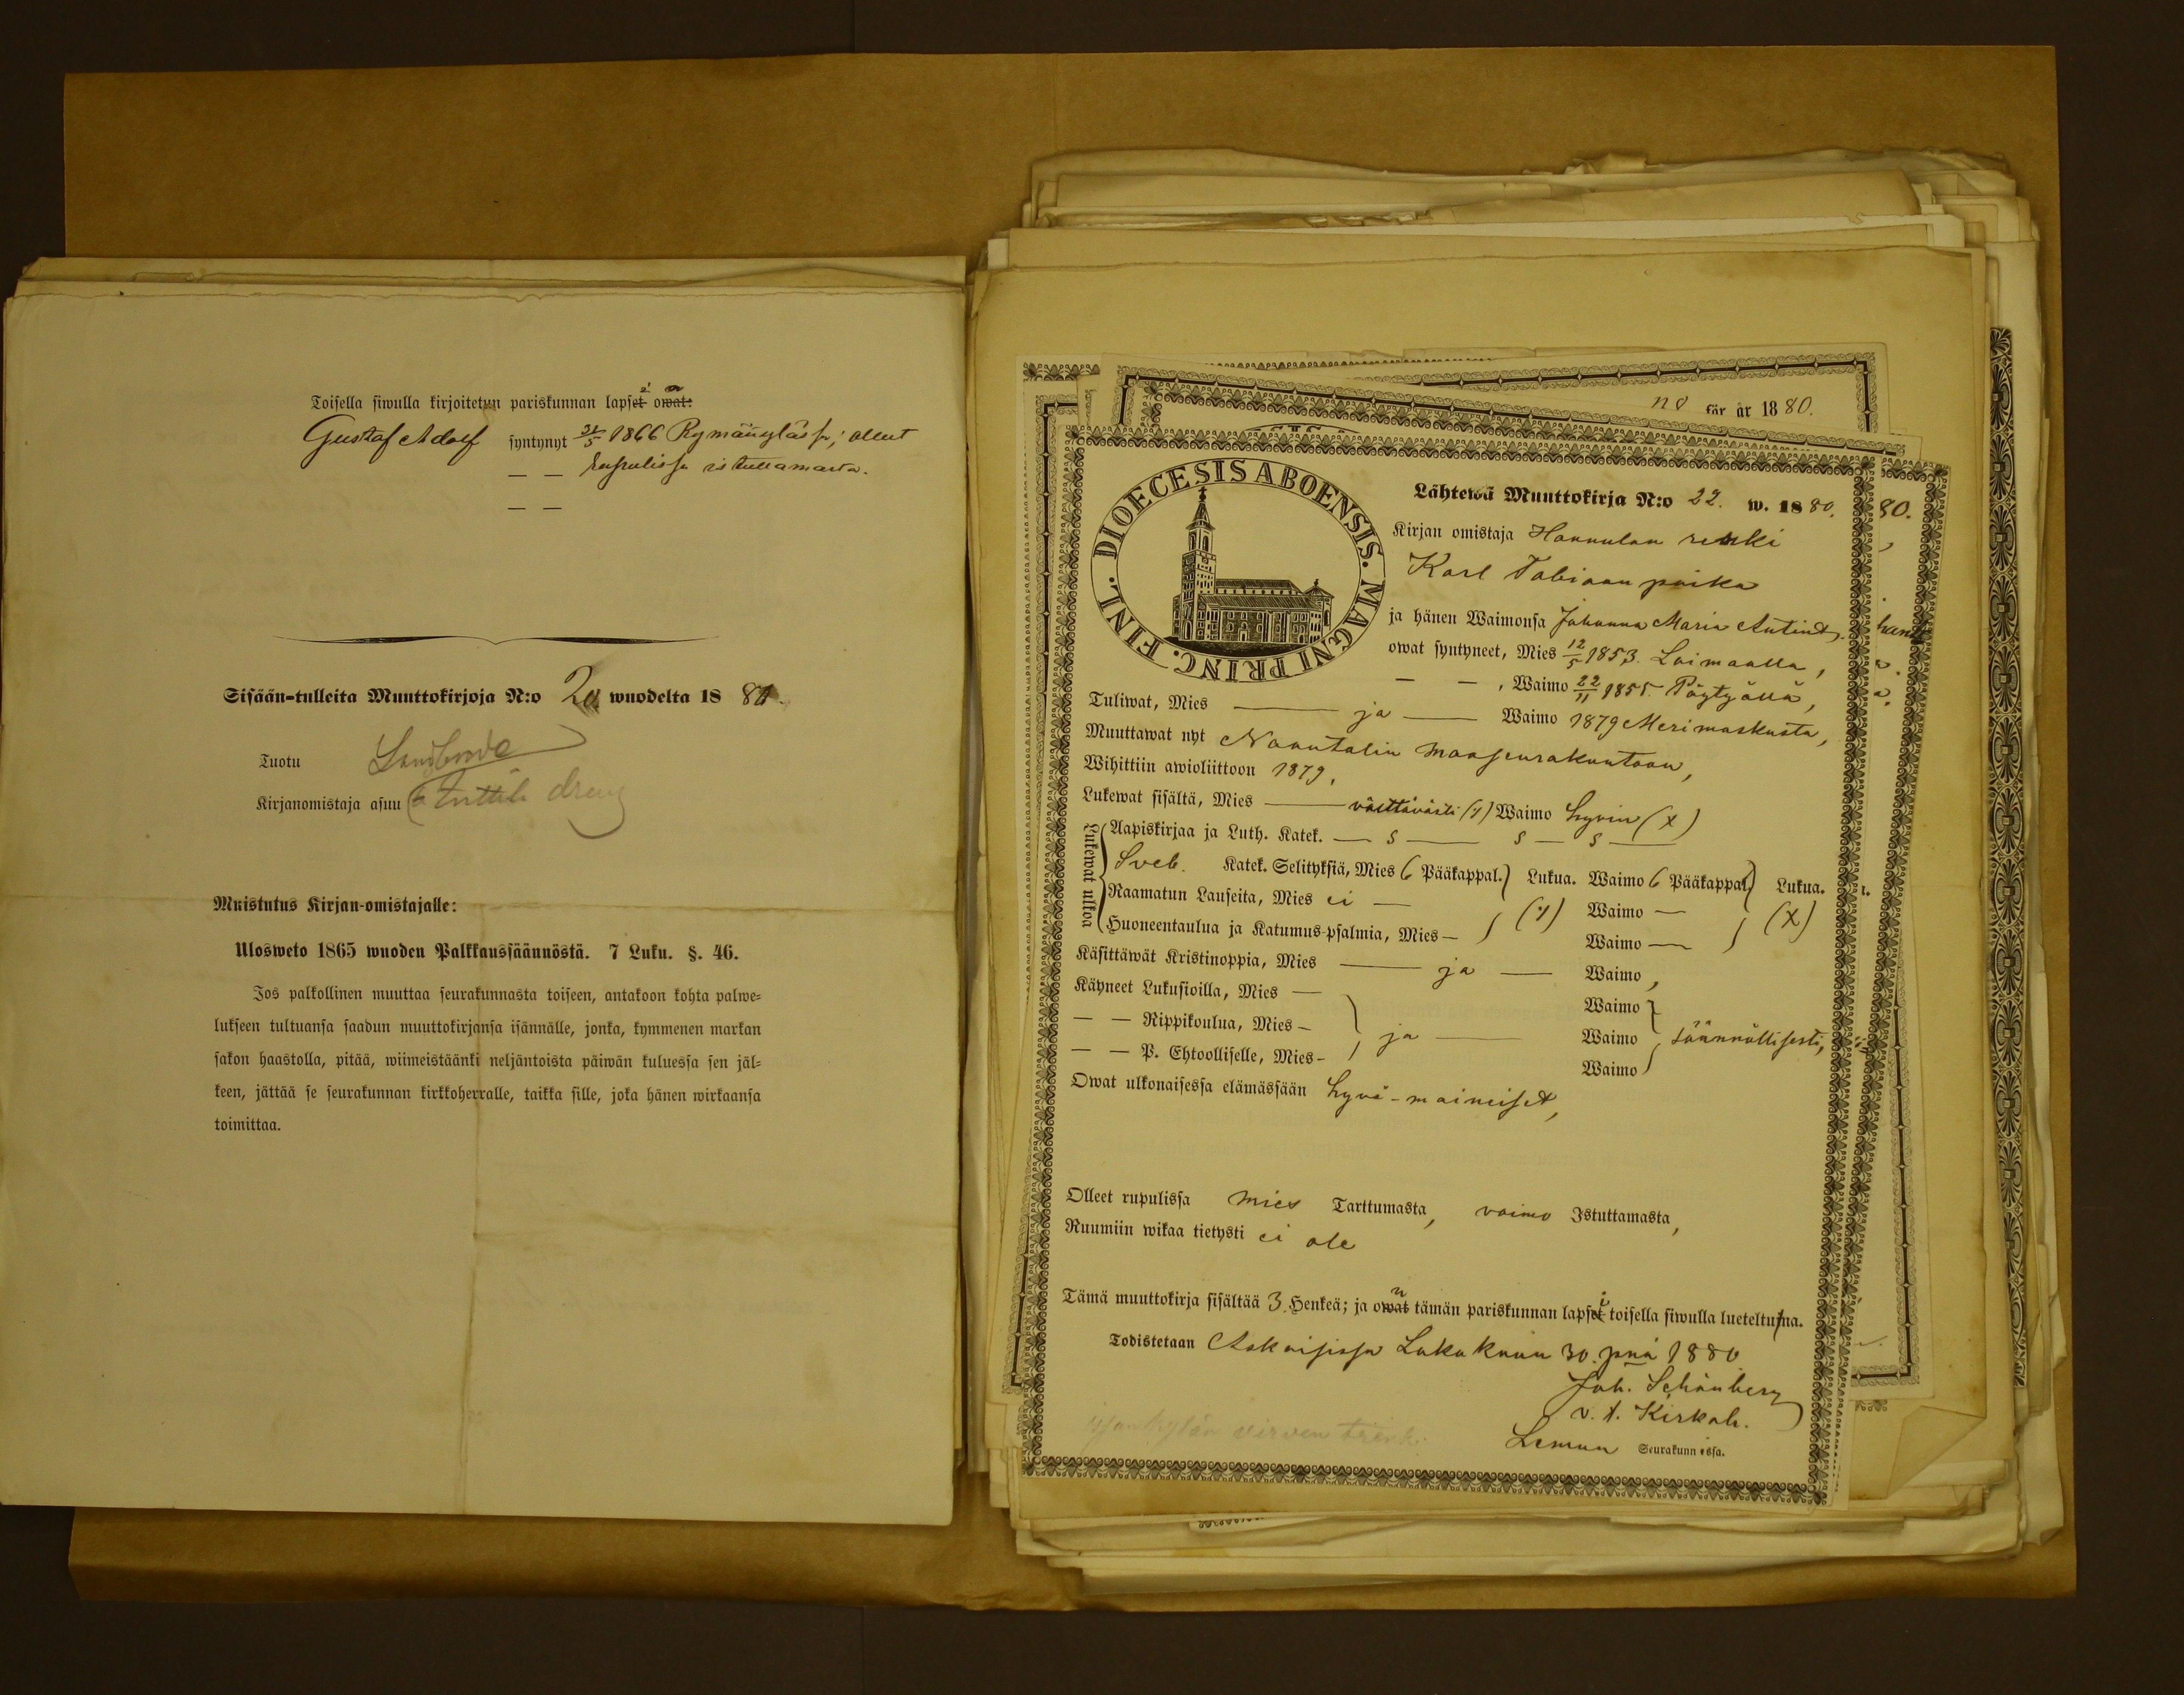 Toisella siwulla kirjoitetun pariskunnan lapset i owat: n
Gustaf Adolf syntynyt 31/5 1866 Rymättylässä; ollut
— — rupulissa istuttamasta.
— —
Sisään-tulleita Muuttokirjoja N:o 20 wuodelta 18 80.
Tuotu
Kirjanomistaja asuu
Muistutus Kirjan-omistajalle:
Ulosweto 1865 wuoden Palkkaussäännöstä. 7 Luku. §. 46.
Jos palkollinen muuttaa seurakunnasta toiseen, antakoon kohta palwe-
lukseen tultuansa saadun muuttokirjansa isännälle, jonka, kymmenen markan
sakon haastolla, pitää, wiimeistäänki neljäntoista päiwän kuluessa sen jäl-
keen, jättää se seurakunnan kirkkoherralle, taikka sille, joka hänen wirkaansa
toimittaa.
no för år 1880.
80.
DIOECESIS ABOENSIS. MAGNI PRINC. FINL.
Lähtewä Muuttokirja N:o 22. w. 1880.
Kirjan omistaja Hannulan renki
Karl Tobiaan poika
ja hänen Waimonsa Johanna Maria Antint.
owat syntyneet, Mies 12/5 1853. Loimaalla,
— — , Waimo 22/11 1855 Pöytyällä,
Tuliwat, Mies — ja — Waimo 1879 Merimaskusta,
Muuttawat nyt Naantalin maaseurakuntaan,
Wihittiin awioliittoon 1879.
Lukewat sisältä, Mies — välttävästi (y) Waimo hyvin (x)
Lukewat ulkoa
Aapiskirjaa ja Luth. Katek. — § — § — § —
Sveb. Katek. Selityksiä, Mies 6 Pääkappal. Lukua. Waimo 6 Pääkappal. Lukua.
Raamatun Lauseita, Mies ei — (y) Waimo — (x)
Huoneentaulua ja Katumus-psalmia, Mies — Waimo —
Käsittäwät Kristinoppia, Mies — ja — Waimo,
Käyneet Lukusioilla, Mies — Waimo
— — Rippikoulua, Mies — ja — Waimo säännöllisesti,
— — P. Ehtoolliselle, Mies - Waimo
Owat ulkonaisessa elämässään hyvä-maineiset,
Olleet rupulissa mies Tarttumasta, vaimo Istuttamasta,
Ruumiin wikaa tietysti ei ole
Tämä muuttokirja sisältää 3. Henkeä; ja owat n tämän pariskunnan lapset i toisella siwulla lueteltuina.
Todistetaan Askaisissa Lokakuun 30. pnä 1880
Joh. Schönberg
v. t. Kirkoh.
Lemun Seurakunnissa.